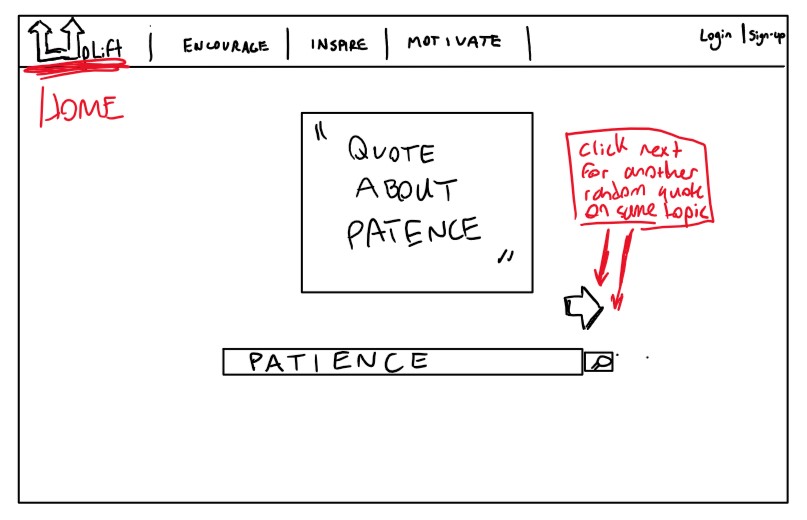 UpLift | ENCOURAGE | INSPIRE | MOTIVATE | Login | Sign-up
HOME
"
QUOTE
ABOUT
PATENCE
"
click next
for another
random quote
on same topic
PATIENCE